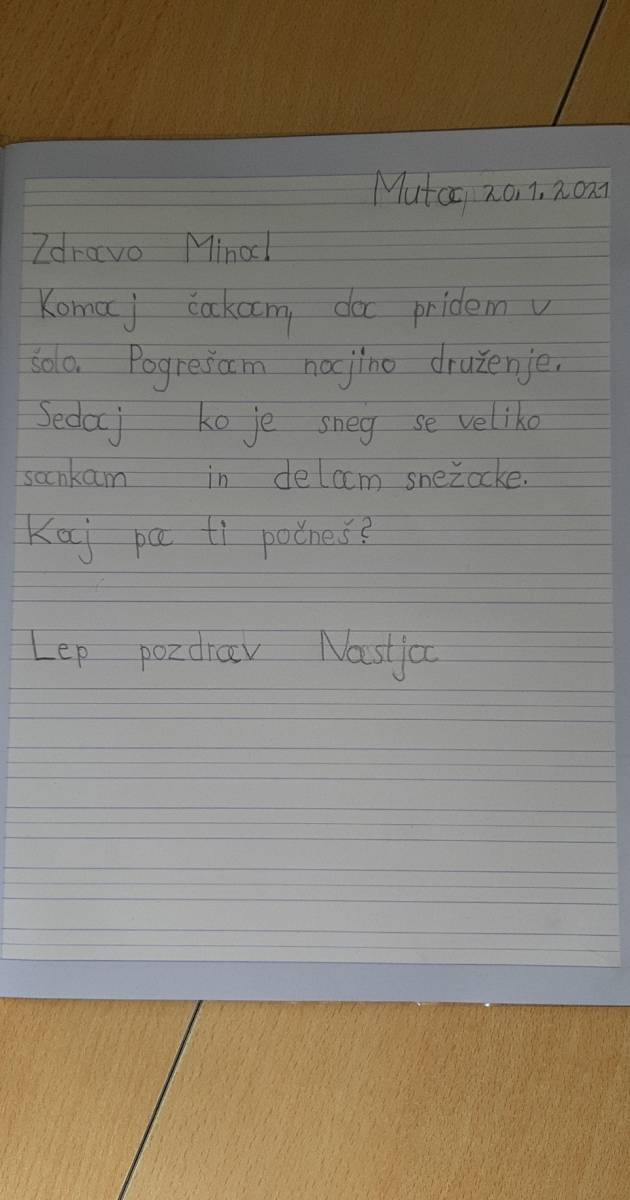 Muta, 20.1.2021
Zdravo Mina!
Komaj čakam, da pridem v
šolo. Pogrešam najino druženje.
Sedaj ko je sneg se veliko
sankam in delam snežake.
Kaj pa ti počneš?
Lep pozdrav Nastja